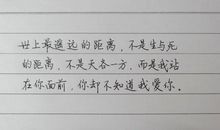 世上最遥远的距离，不是生与死
的距离，不是天各一方，而是我站
在你面前，你却不知道我爱你。